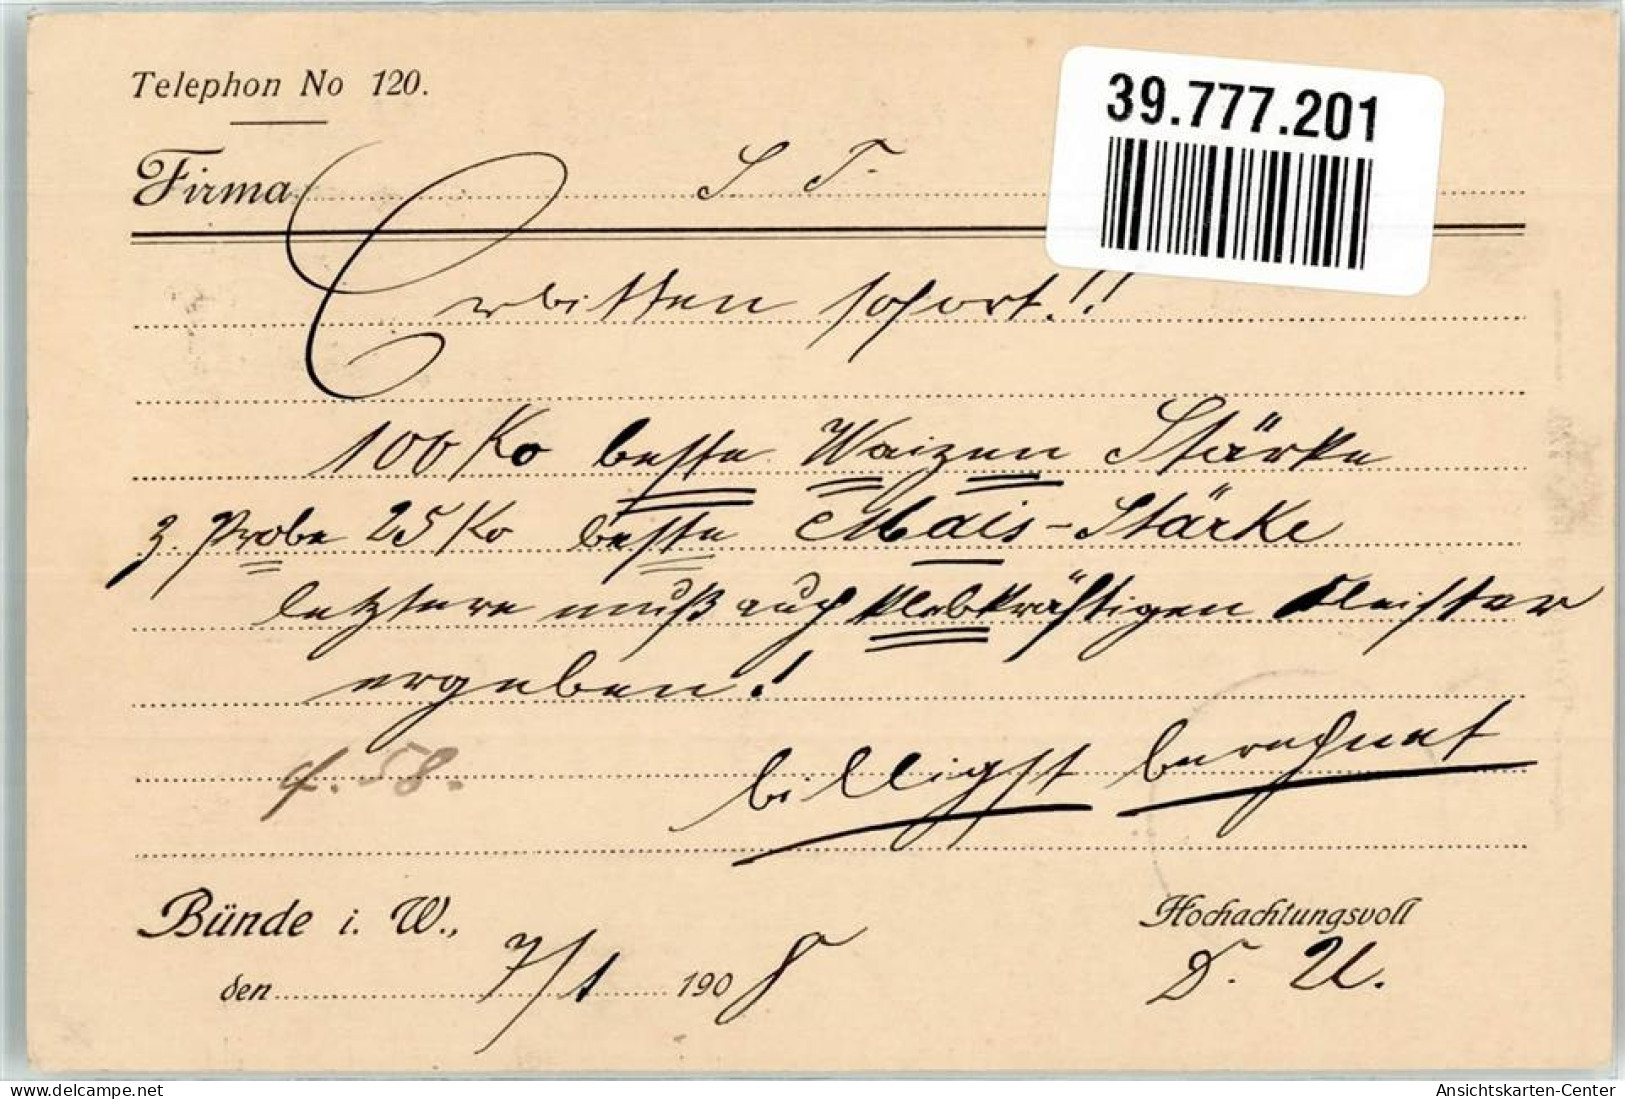 Telephon No 120.
39.777.201
Firma S. T.
Erbitten sofort!!
100 Ko beste Waizen Stärke
z. Probe 25 Ko beste Mais-Stärke
letztere muß auch klebkräftigen Kleister
ergeben!
f. 58.
billigst berechnet
Bünde i. W.,
Hochachtungsvoll
den 7/1 1908
D. U.
delcampe.net
Ansichtskarten-Center